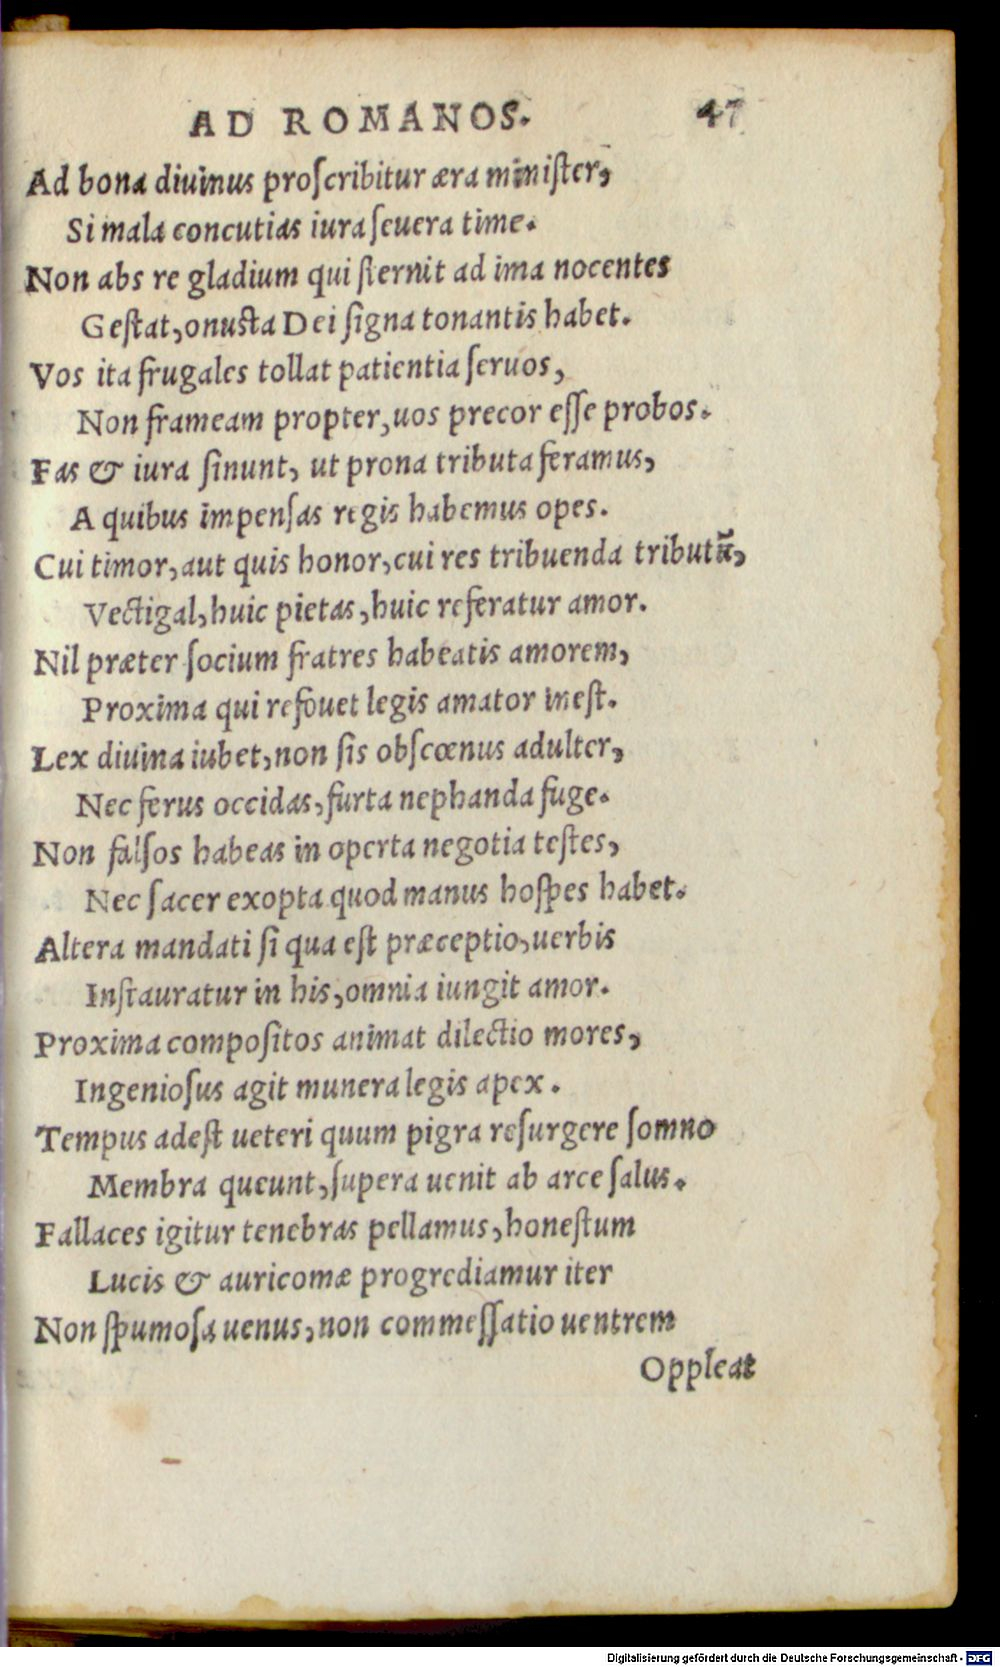 AD ROMANOS. 47
Ad bona diuinus proſcribitur æra miniſter,
Si mala concutias iura ſeuera time.
Non abs re gladium qui ſternit ad ima nocentes
Geſtat, onuſta Dei ſigna tonantis habet.
Vos ita frugales tollat patientia ſeruos,
Non frameam propter, uos precor eſſe probos.
Fas & iura ſinunt, ut prona tributa feramus,
A quibus impenſas regis habemus opes.
Cui timor, aut quis honor, cui res tribuenda tributū,
Vectigal, huic pietas, huic referatur amor.
Nil præter ſocium fratres habeatis amorem,
Proxima qui refouet legis amator ineſt.
Lex diuina iubet, non ſis obſcœnus adulter,
Nec ferus occidas, furta nephanda fuge.
Non falſos habeas in operta negotia teſtes,
Nec ſacer exopta quod manus hoſpes habet.
Altera mandati ſi qua eſt præceptio, uerbis
Inſtauratur in his, omnia iungit amor.
Proxima compoſitos animat dilectio mores,
Ingenioſus agit munera legis apex.
Tempus adeſt ueteri quum pigra reſurgere ſomno
Membra queunt, ſupera uenit ab arce ſalus.
Fallaces igitur tenebras pellamus, honeſtum
Lucis & auricomæ progrediamur iter
Non ſpumoſa uenus, non commeſſatio uentrem
Oppleat
Digitalisierung gefördert durch die Deutsche Forschungsgemeinschaft - DFG